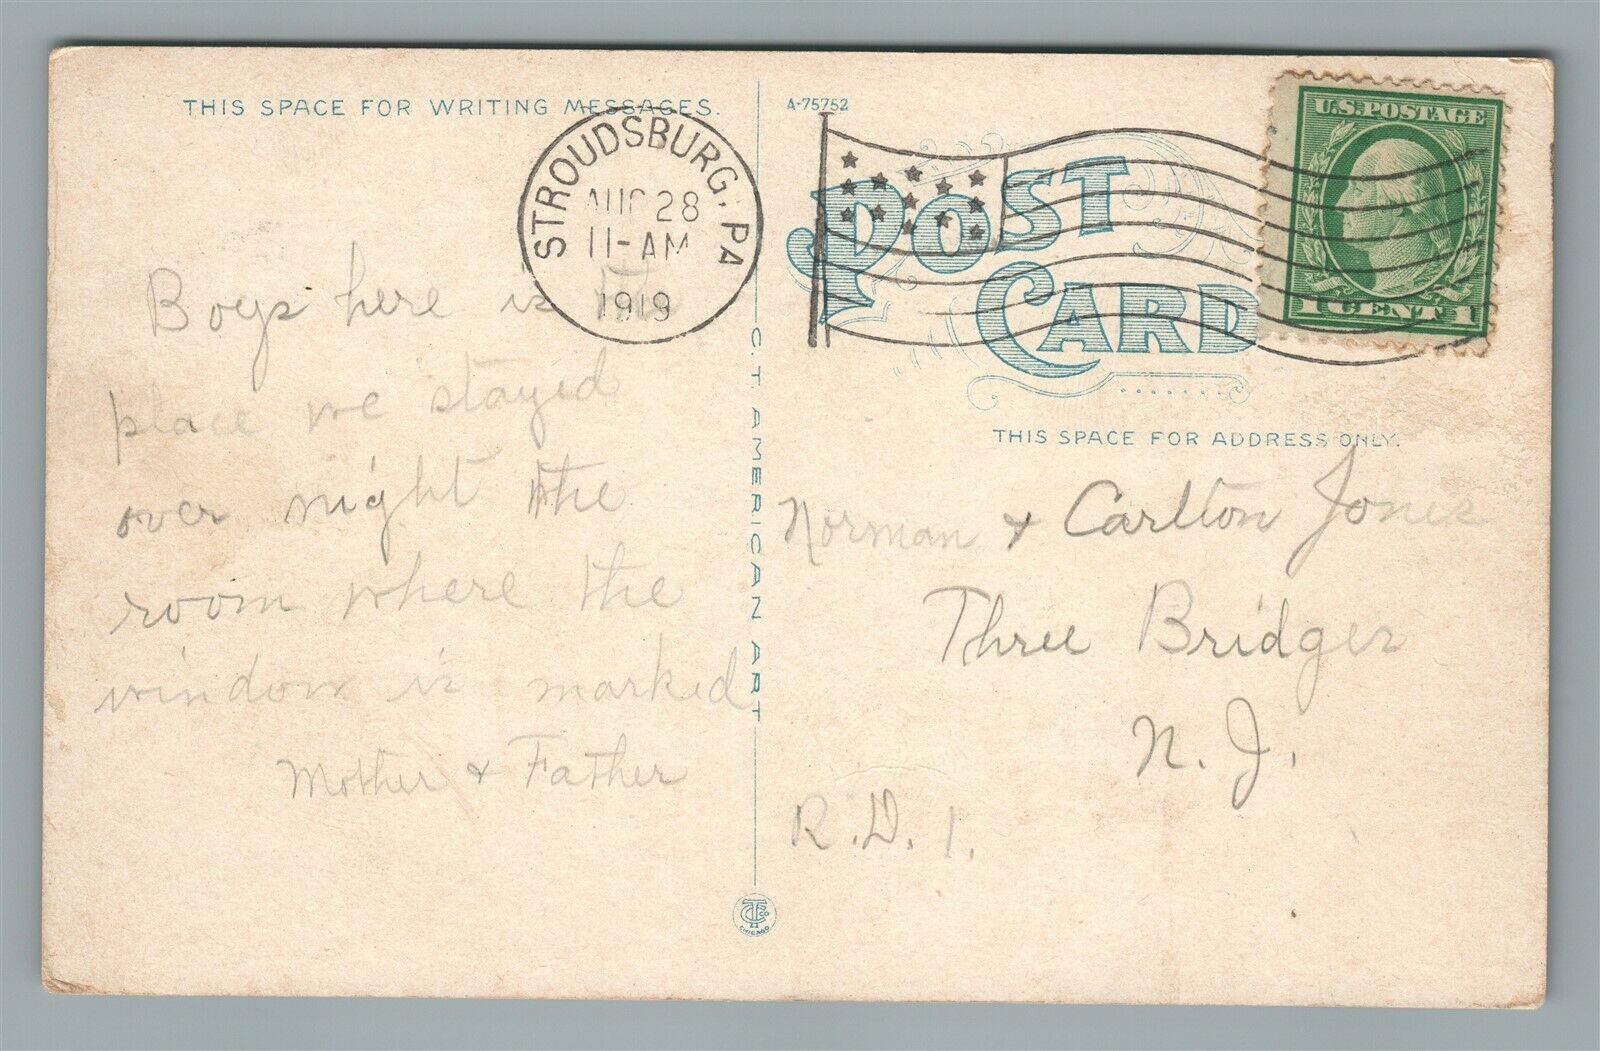 THIS SPACE FOR WRITING MESSAGES.
A-75752
STROUDSBURG, PA
AUG 28
11-AM
1919
U.S. POSTAGE
1 CENT 1
POST
CARD
THIS SPACE FOR ADDRESS ONLY.
Boys here is the
place we stayed
over night the
room where the
window is marked
Mother & Father
C. T. AMERICAN ART
Norman & Carlton Jones
Three Bridges
N. J.
R. D. 1.
CHICAGO